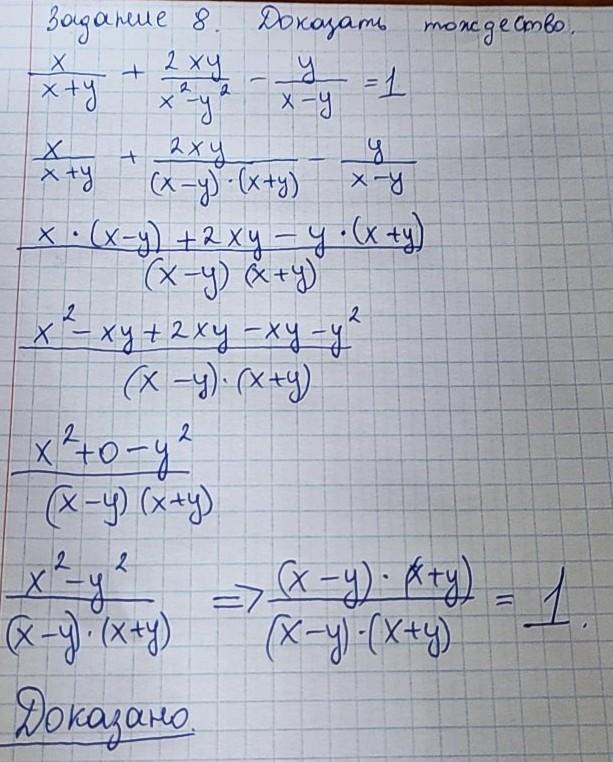 Задание 8. Доказать тождество.
x/(x+y) + 2xy/(x²-y²) - y/(x-y) = 1
x/(x+y) + 2xy/((x-y)·(x+y)) - y/(x-y)
(x·(x-y)+2xy-y·(x+y))/((x-y)(x+y))
(x²-xy+2xy-xy-y²)/((x-y)·(x+y))
(x²+0-y²)/((x-y)(x+y))
(x²-y²)/((x-y)·(x+y)) => ((x-y)·(x+y))/((x-y)·(x+y)) = 1.
Доказано.